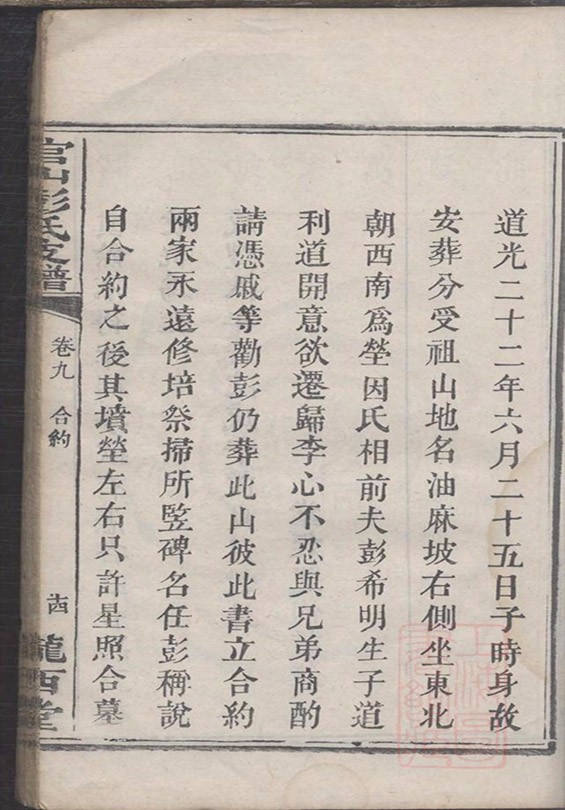 道光二十二年六月二十五日子時身故
安葬分受祖山地名油麻坡右側坐東北
朝西南爲塋因氏相前夫彭希明生子道
利道開意欲遷歸李心不忍與兄弟商酌
請憑戚等勸彭仍葬此山彼此書立合約
兩家永遠修培祭掃所竪碑名任彭稱說
自合約之後其墳塋左右只許星照合墓
官山彭氏支譜
卷九 合約
隴西堂